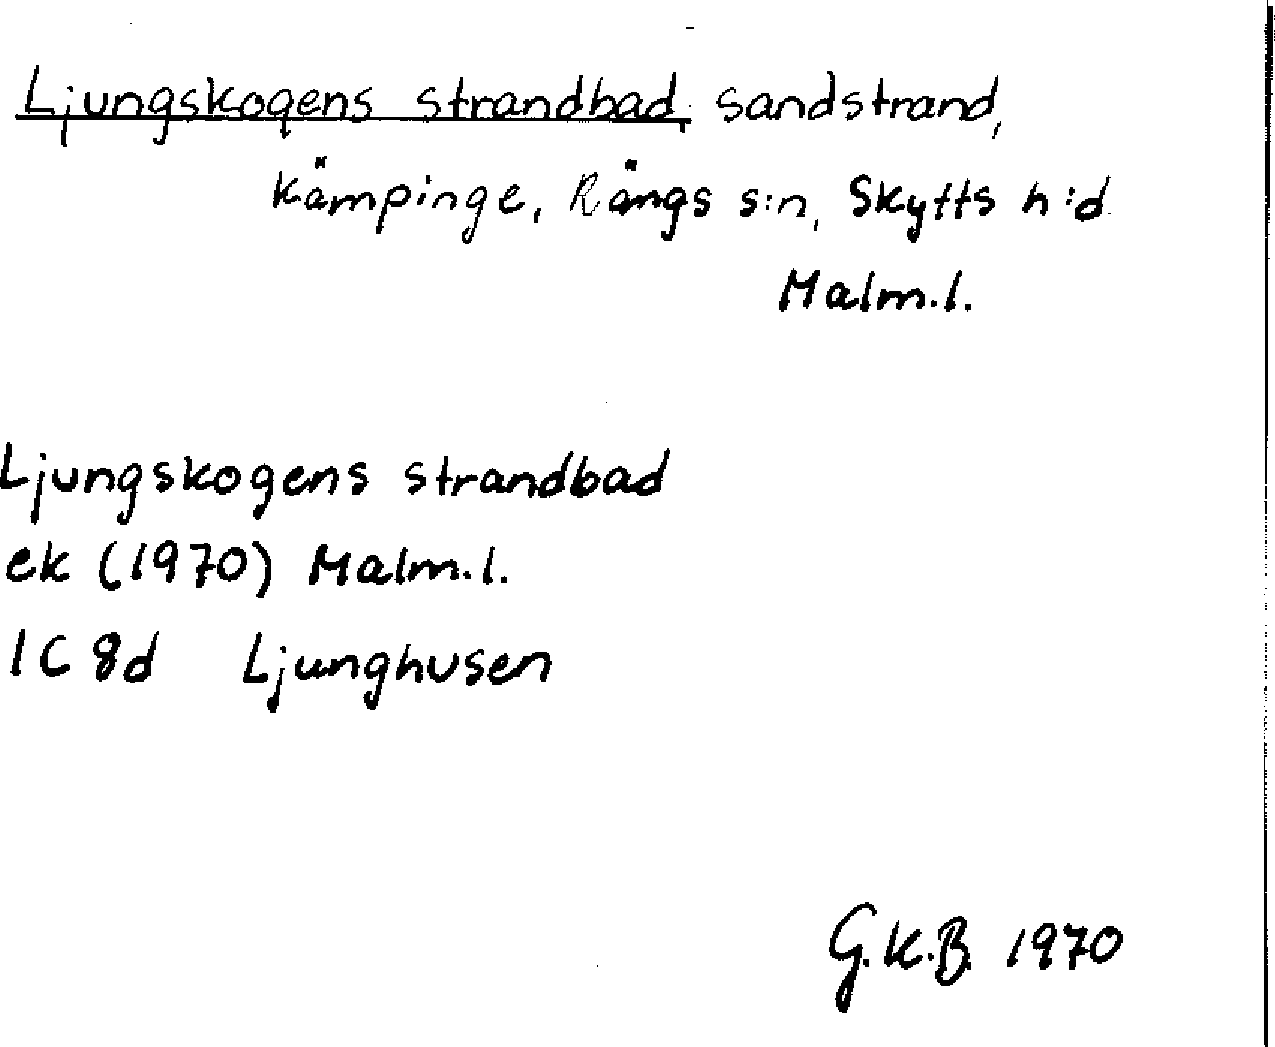 Ljungskogens strandbad, sandstrand,
Kämpinge, Rängs s:n, Skytts h:d
Malm.l.
Ljungskogens strandbad
ek (1970) Malm.l.
1C 8d Ljunghusen
G.K.B. 1970